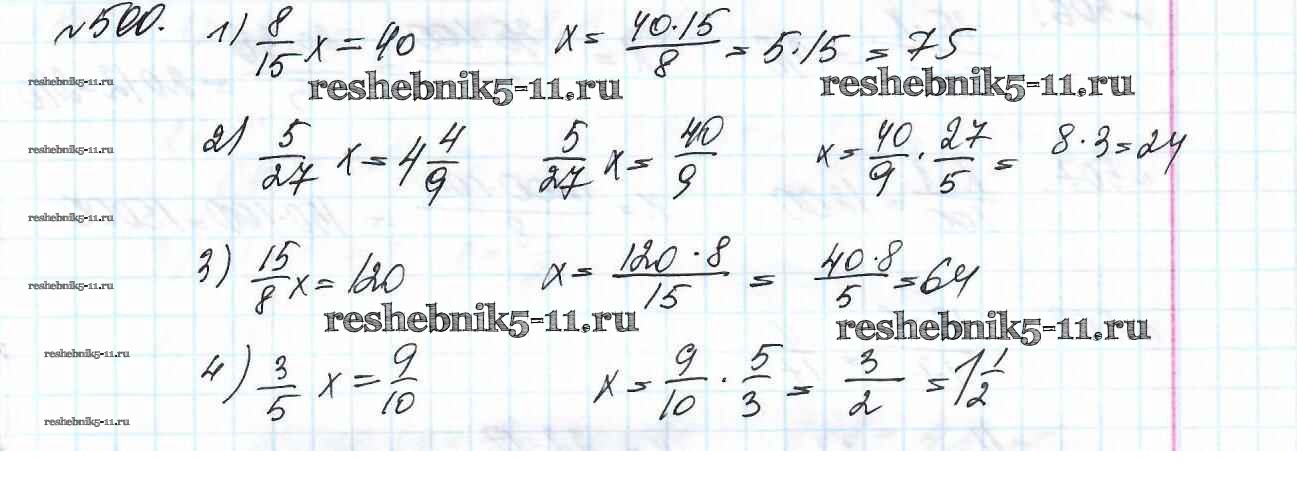 №500. 1) 8/15 x = 40 x = 40·15/8 = 5·15 = 75
reshebnik5-11.ru reshebnik5-11.ru reshebnik5-11.ru
2) 5/27 x = 4 4/9 5/27 x = 40/9 x = 40/9 · 27/5 = 8·3=24
reshebnik5-11.ru
reshebnik5-11.ru
3) 15/8 x = 120 x = 120·8/15 = 40·8/5 = 64
reshebnik5-11.ru
reshebnik5-11.ru reshebnik5-11.ru
reshebnik5-11.ru
4) 3/5 x = 9/10 x = 9/10 · 5/3 = 3/2 = 1 1/2
reshebnik5-11.ru